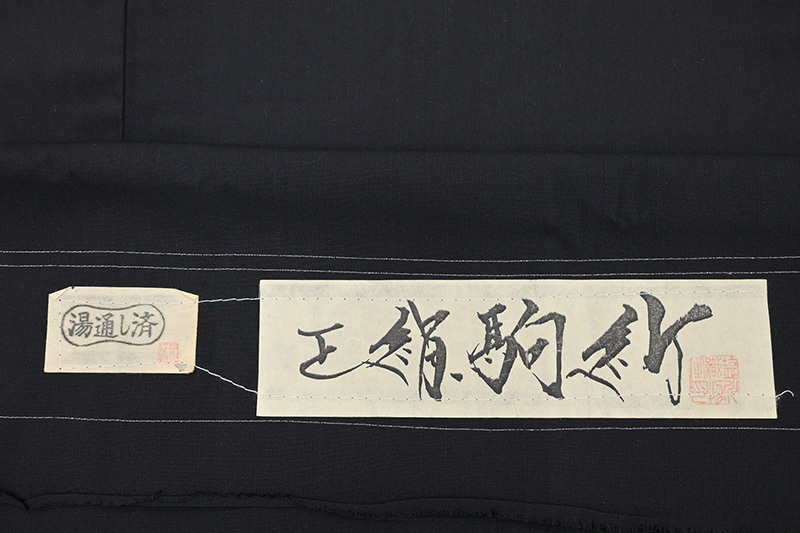 湯通し済
正絹駒紗